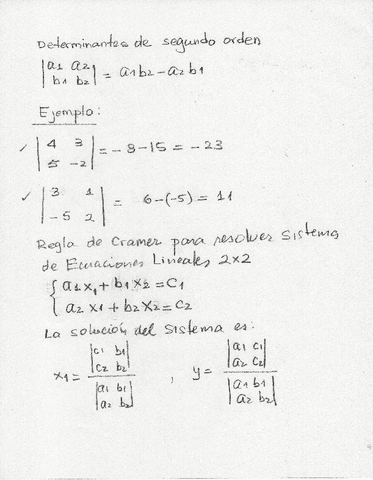 Determinantes de segundo orden
|a1 a2|
|b1 b2| = a1b2 - a2b1
Ejemplo:
✓ |4 3|
|5 -2| = -8-15 = -23
✓ |3 1|
|-5 2| = 6-(-5) = 11
Regla de Cramer para resolver Sistema
de Ecuaciones Lineales 2x2
{ a1x1 + b1x2 = C1
a2x1 + b2x2 = C2
La solución del Sistema es:
x1 = |c1 b1| / |a1 b1| , y = |a1 c1| / |a1 b1|
|c2 b2| / |a2 b2| |a2 c2| / |a2 b2|